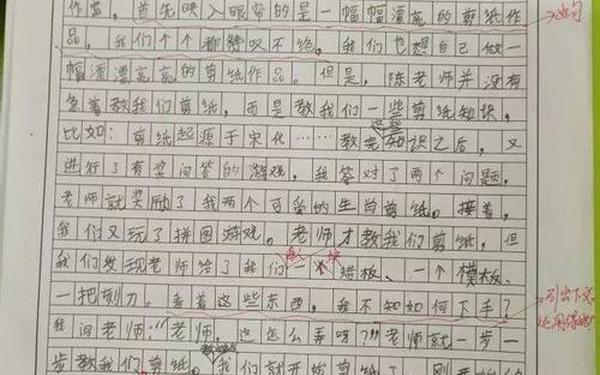 作室，首先映入眼帘的是一幅幅漂亮的剪纸作
品，我们个个都赞叹不绝。我们也想自己做一
幅漂漂亮亮的剪纸作品。但是，陈老师并没有
急着教我们剪纸，而是教我们一些剪纸知识，
比如：剪纸起源于宋代……教完这些知识之后，又
进行了有奖问答的游戏，我答对了两个问题，
老师就奖励了我两个可爱的生肖剪纸。接着，
我们又玩了拼图游戏。老师才教我们剪纸，但
我们发现老师给了我们每人一块蜡板、一个模板、
一把刻刀。看着这些东西，我不知如何下手？
我问老师：“老师，这怎么弄呀？”老师就一步一
步教我们剪纸。我们就开始剪纸了
引出下文